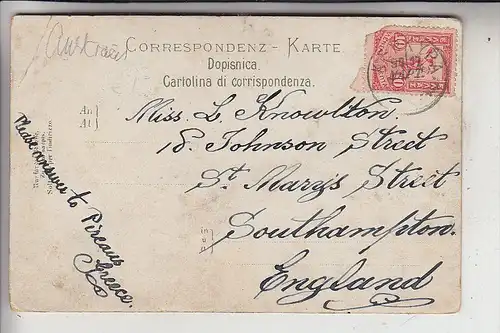 (Austria)
CORRESPONDENZ - KARTE
Dopisnica.
Cartolina di corrispondenza.
An
At
Miss. L. Knowlton.
18. Johnson Street
St Mary's Street
Southampton.
England
in
Please answer to Pireaus
Greece.
ΕΛΛΑΣ
10
10